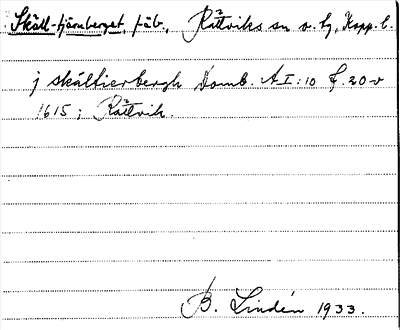 Skäll-tjärnberget, fäb., Rättviks sn o. tg, Kopp. l.
j skällierbergh Domb. AI:10 f. 20 v
1615; Rättvik.
B. Lindén 1933.